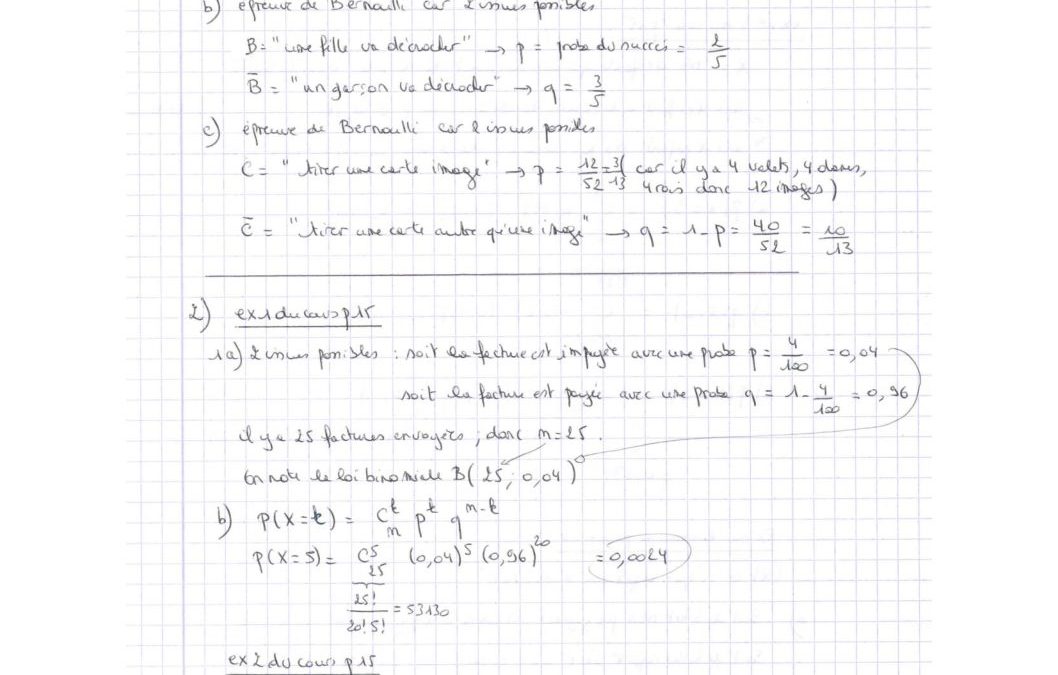 b) épreuve de Bernoulli car 2 issues possibles
B = "une fille va décrocher" → p = proba du succès = 2/5
B̅ = "un garçon va décrocher" → q = 3/5
c) épreuve de Bernoulli car 2 issues possibles
C = "tirer une carte image" → p = 12/52 = 3/13 (car il y a 4 valets, 4 dames,
4 rois donc 12 images)
C̅ = "tirer une carte autre qu'une image" → q = 1 - p = 40/52 = 10/13
2) ex 1 du cours p 15
1a) 2 issues possibles : soit la facture est impayée avec une proba p = 4/100 = 0,04
soit la facture est payée avec une proba q = 1 - 4/100 = 0,96
il y a 25 factures envoyées ; donc n = 25.
On note la loi binomiale B(25; 0,04)
b) P(X=k) = C_n^k p^k q^(n-k)
P(X=5) = C_25^5 (0,04)^5 (0,96)^20 = 0,0024
25!/(20! 5!) = 53130
ex 2 du cours p 15